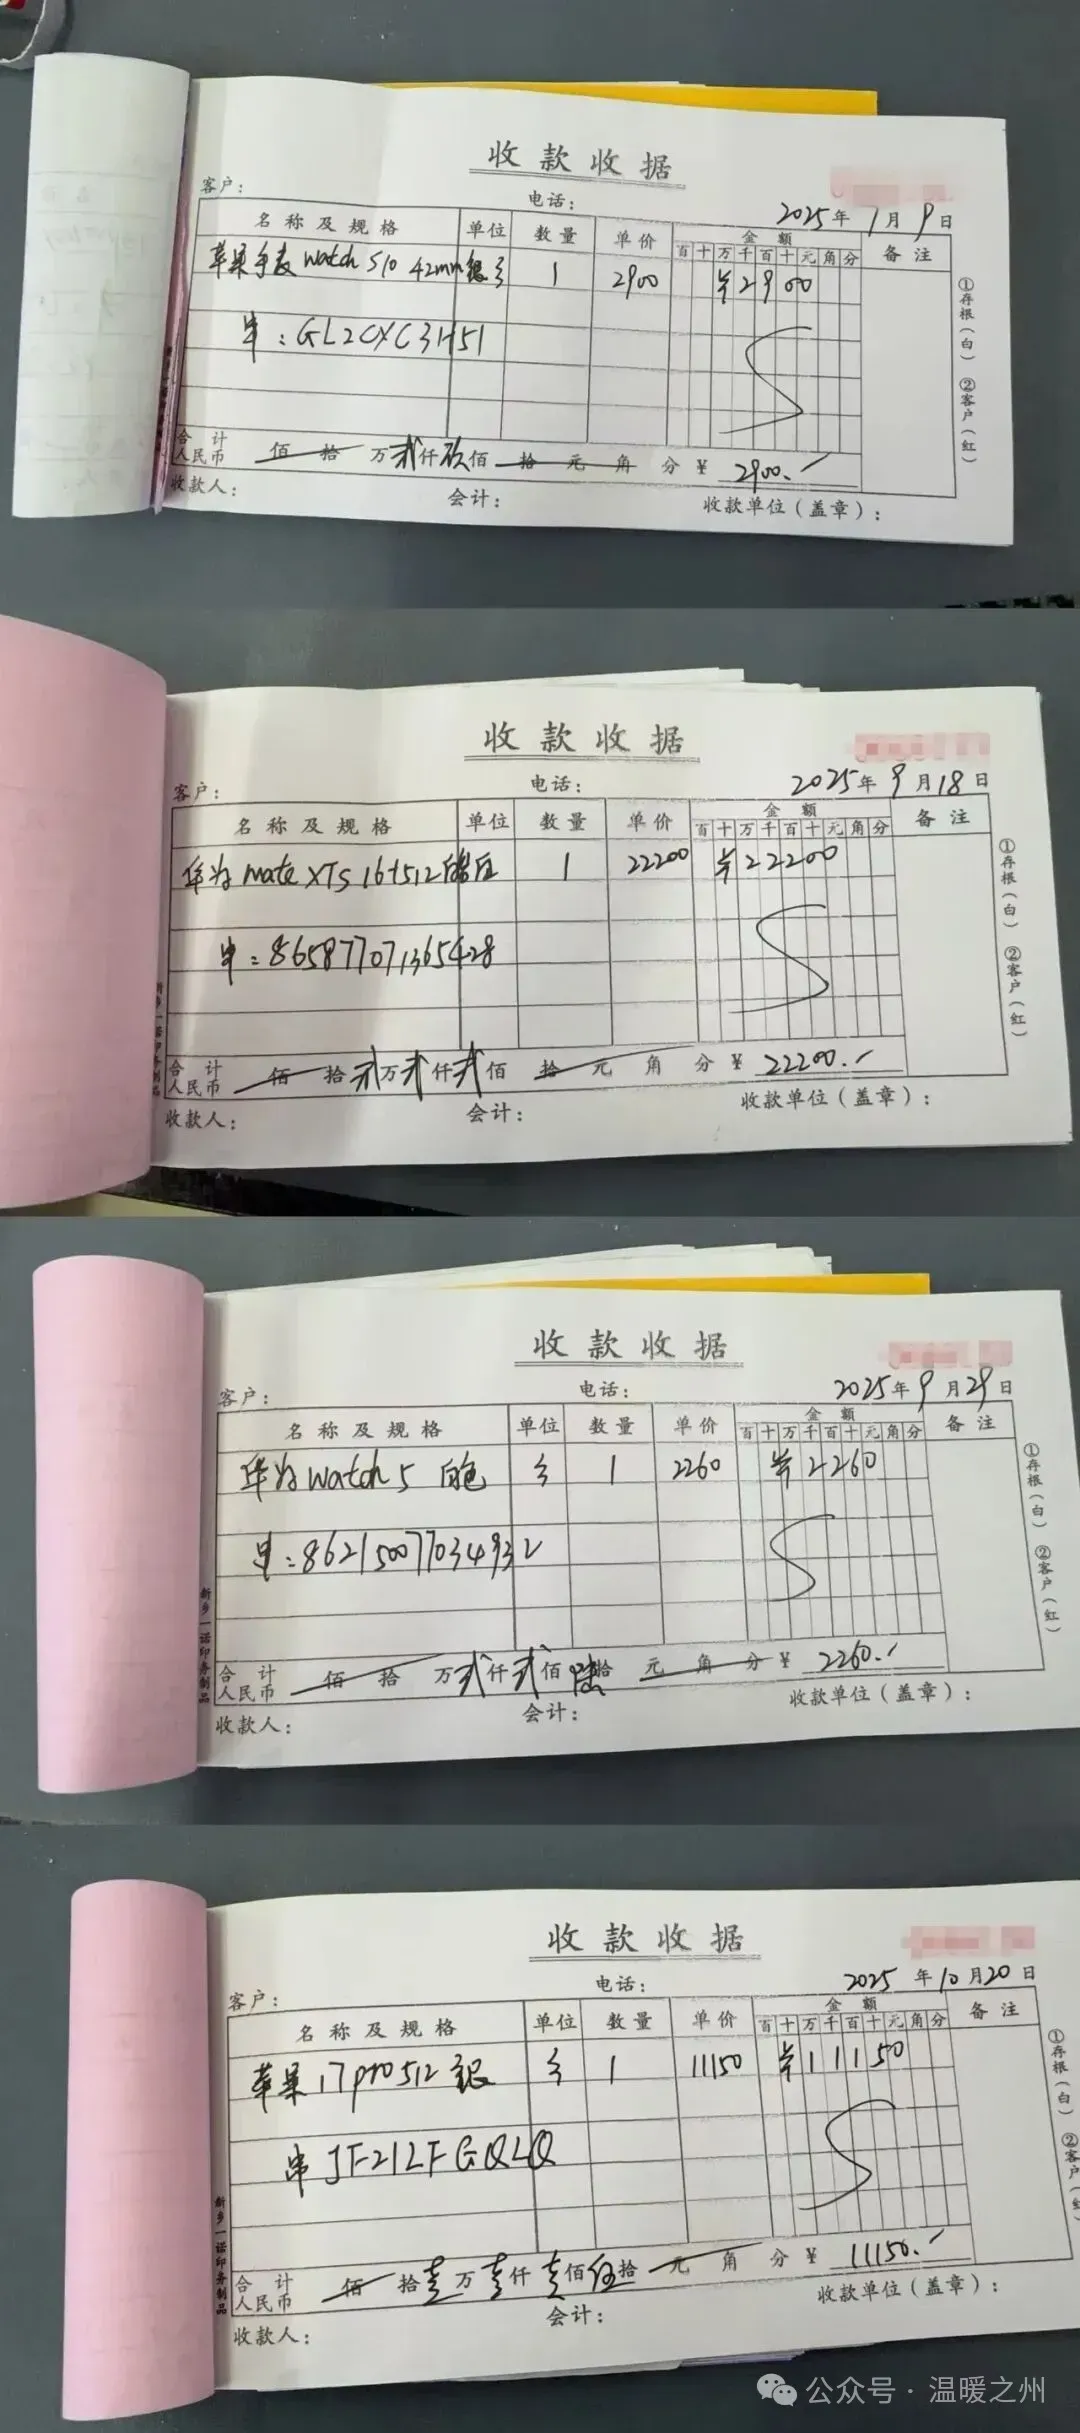 收款收据
客户： 电话： 2025年1月9日
名称及规格 单位 数量 单价 金额 备注
百十万千百十元角分
苹果手表 watch S10 42mm 银 1 2900 ¥2900
串：GL2CXC31H51
合计人民币 佰拾万贰仟玖佰拾元角分 ¥ 2900.
收款人： 会计： 收款单位（盖章）：
①存根（白） ②客户（红）
收款收据
客户： 电话： 2025年9月18日
名称及规格 单位 数量 单价 金额 备注
百十万千百十元角分
华为 mate XTs 16+512 1 22200 ¥22200
串：865877071365428
合计人民币 佰拾贰万贰仟贰佰拾元角分 ¥ 22200.
收款人： 会计： 收款单位（盖章）：
①存根（白） ②客户（红）
新乡一诺印务制品
收款收据
客户： 电话： 2025年9月29日
名称及规格 单位 数量 单价 金额 备注
百十万千百十元角分
华为 watch 5 白色 1 2260 ¥2260
串：862150077034932
合计人民币 佰拾万贰仟贰佰陆拾元角分 ¥ 2260.
收款人： 会计： 收款单位（盖章）：
①存根（白） ②客户（红）
新乡一诺印务制品
收款收据
客户： 电话： 2025年10月20日
名称及规格 单位 数量 单价 金额 备注
百十万千百十元角分
苹果 17pro 512 银 1 11150 ¥11150
串 JF21LFGQLQ
合计人民币 佰拾壹万壹仟壹佰伍拾元角分 ¥ 11150.
收款人： 会计： 收款单位（盖章）：
①存根（白） ②客户（红）
新乡一诺印务制品
公众号·温暖之州